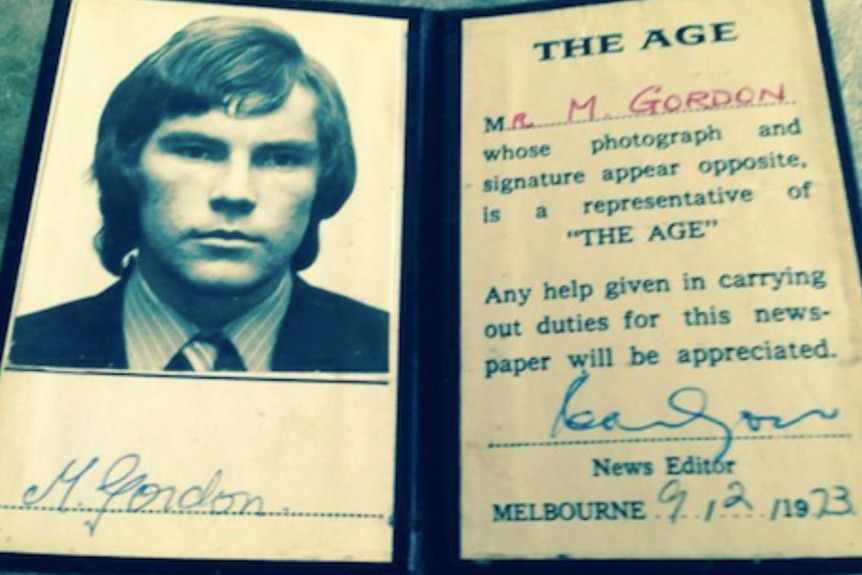 M. Gordon
THE AGE
MR M. GORDON
whose photograph and
signature appear opposite,
is a representative of
"THE AGE"
Any help given in carrying
out duties for this news-
paper will be appreciated.
News Editor
MELBOURNE 9/2/1973